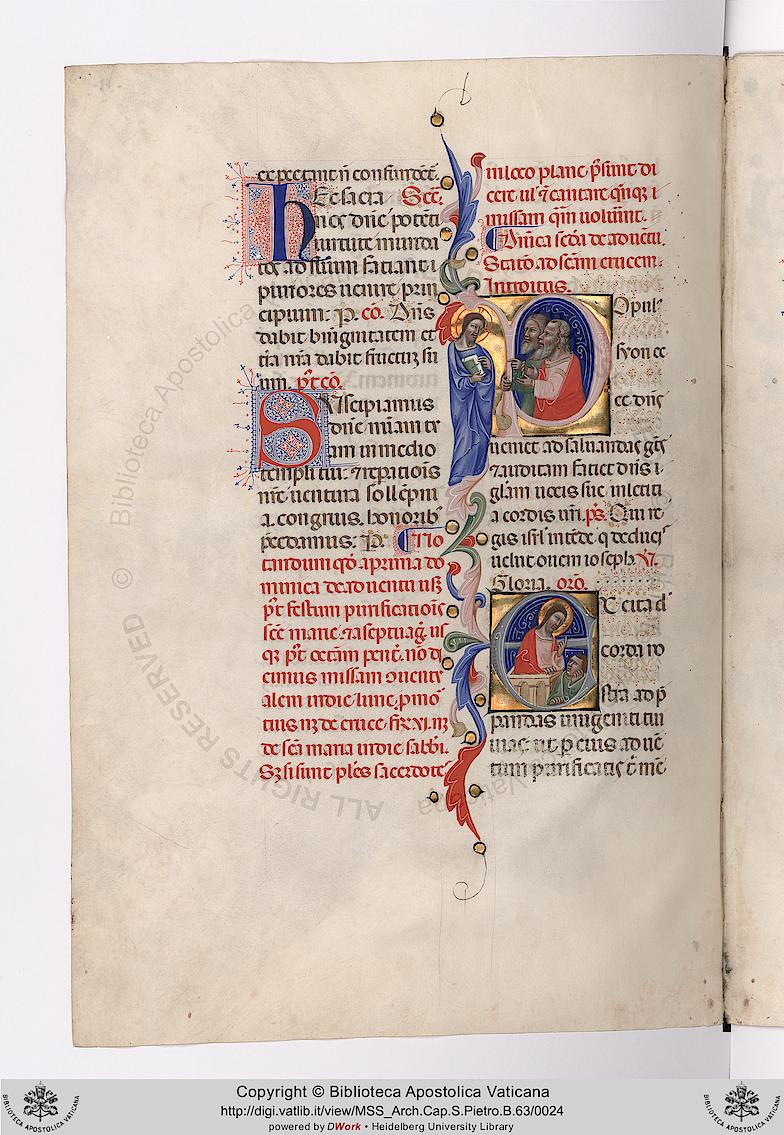 ex pectant ñ confundēt.
HEc sacra Secr.
nos dñe potēti
uirtute munda
tos ad suum faciant i
puriores uenire prin
cipium. P. cō. Dñs
dabit benignitatem et
t̄ra nr̄a dabit fructū su
um. p̄t cō.
SUscipiamus
dñe mīam tu
am in medio
templi tui: ⁊ reparatiōis
nr̄e uentura sollēpni
a. congruis. honorib'
p̄cedamus. P. No
tandum qō a prima do
minica de aduentu usq̄
p̄t festum purificatiōis
scē marie. ⁊ a septuaḡ. us
q̄ p̄t octām pent̄. nō di
cimus missam ōuentu
alem in die lune. p̄ mor
tuis nz de cruce fr. vi. nz
de scā maria in die sabbi.
Sz si sint pl̄es sacerdote
in loco plane p̄sunt di
cere ul' ⁊ cantare qn̄q̄ i
missam qn̄ uoluint.
Dnīca scd̄a de aduētu.
Statō ad scām crucem.
Introitus.
POpul'
syon ec
ce dn̄s
ueniet ad saluandas gēs
⁊ auditam faciet dn̄s i
glām uocis sue in letiti
a cordis ur̄i. p̄s. Qui re
gis isrl̄ intēde q̄ deducis
uelut ouem ioseph. V.
Gloria. orō.
EXcita d
corda nr̄o
ad p̄
parandas unigeniti tui
uias. ut p eius aduē
tum purificatis t' mē
© Biblioteca Apostolica Vaticana
ALL RIGHTS RESERVED
Copyright © Biblioteca Apostolica Vaticana
http://digi.vatlib.it/view/MSS_Arch.Cap.S.Pietro.B.63/0024
powered by DWork • Heidelberg University Library
BIBLIOTECA APOSTOLICA VATICANA
BIBLIOTECA APOSTOLICA VATICANA